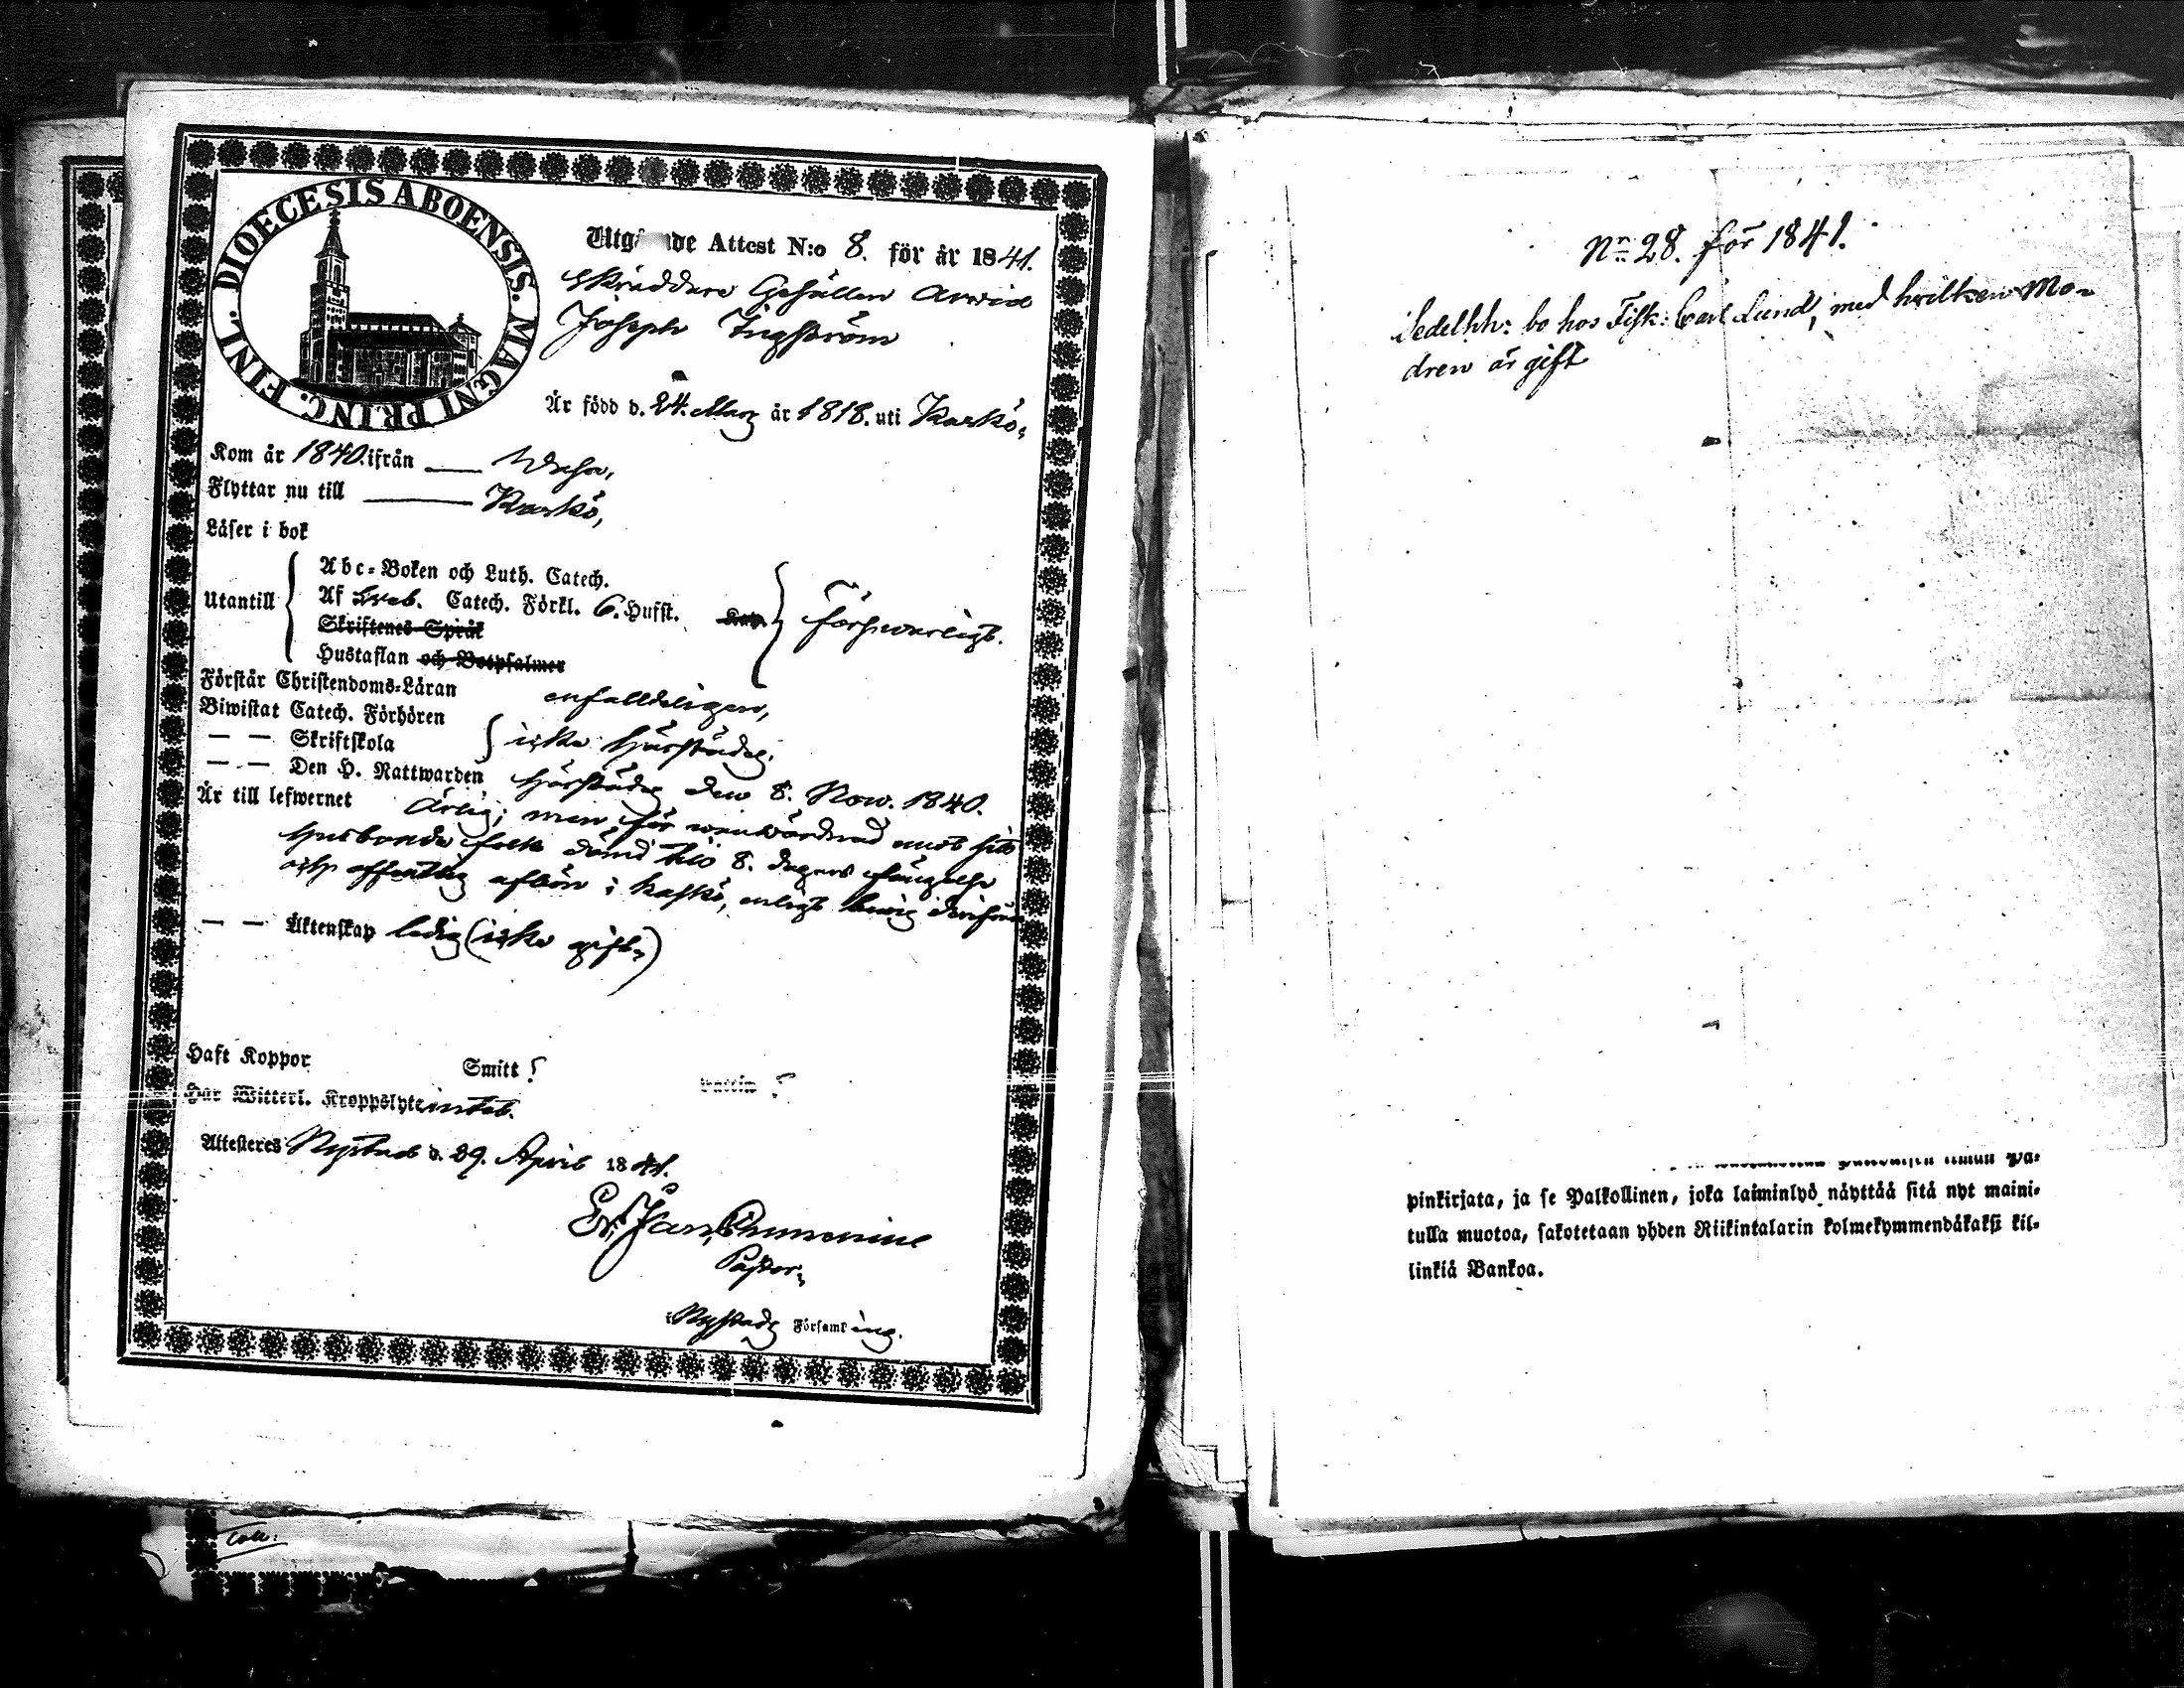 DIOECESIS ABOENSIS. MAGNI PRINC. FINL.
Utgående Attest N:o 8. för år 1841.
Skräddare Gesällen Arvid
Joseph Ingström
Är född d. 24. Mars år 1818. uti Kaskö,
Kom år 1840. ifrån Wasa,
Flyttar nu till Kaskö,
Läser i bok
Utantill
Abc-Boken och Luth. Catech.
Af Catech. Förkl. 6. Hufst. Kap.
Skriftenes Språk
Hustaflan och Botpsalmer
Försvarligt.
Förstår Christendoms-Läran enfaldeligen,
Biwistat Catech. Förhören
— — Skriftskola
icke härstädes.
— — Den H. Nattwarden härstädes den 8. Nov. 1840.
Är till lefwernet Ärlig; men för wanwördnad mot sitt
husbonde folk dömd till 8. dagars fängelse
och offentlig aflön i Kaskö, enligt
— — Äktenskap ledig (icke gift)
Haft Koppor Smitt
Har Witterl. Kroppslyte intet.
Attesteres Nystad d. 29. April 1841.
Pastor
Nystads Församl ing.
Nr 28. för 1841.
Sedelhh: bo hos Fisk: Carl Lund, med hvilken Mo-
dren är gift
pinkirjata, ja se Palkollinen, joka laiminlyö näyttää sitä nyt maini-
tulla muotoa, sakotetaan yhden Riikintalarin kolmekymmendäkaksi kil-
linkiä Bankoa.